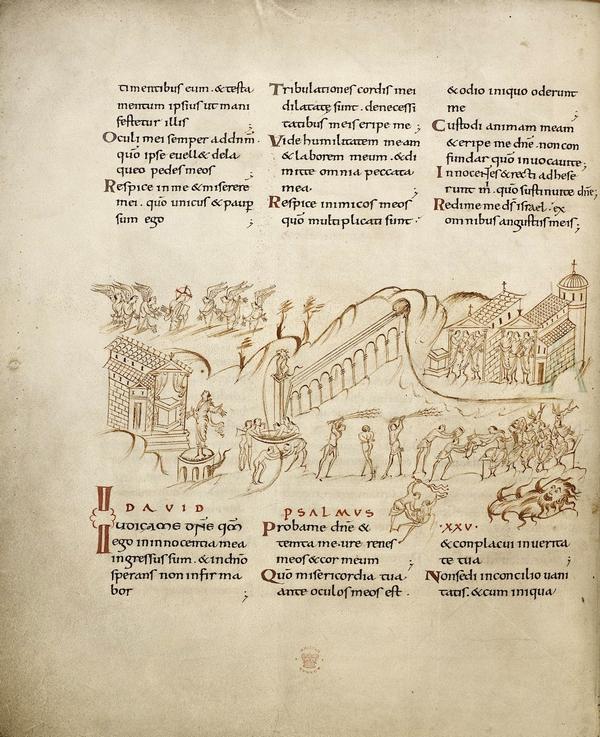 timentibus eum · & testa
mentum ipsius ut mani
festetur illis ;
Oculi mei semper ad dnm ·
quō ipse euell& de la
queo pedes meos
Respice in me & miserere
mei · quō unicus & paup
sum ego ;
Tribulationes cordis mei
dilatate sunt · de necessi
tatibus meis eripe me ;
Vide humilitatem meam
& laborem meum · & di
mitte omnia peccata
mea ·
Respice inimicos meos
quō multiplicati sunt ·
& odio iniquo oderunt
me ;
Custodi animam meam
& eripe me dne · non con
fundar quō inuocaui te ;
Innocentes & recti adhese
runt m · quō sustinui te dne ;
Redime me ds israel · ex
omnibus angustiis meis ;
DAVID
Iudica me dne qm
ego in innocentia mea
ingressus sum · & in dno
sperans non infirma
bor ;
PSALMUS
Proba me dne &
tempta me · ure renes
meos & cor meum ;
Quō misericordia tua ·
ante oculos meos est ·
·XXV·
& conplacui in uerita
te tua ;
Non sedi in concilio uani
tatis · & cum iniqua